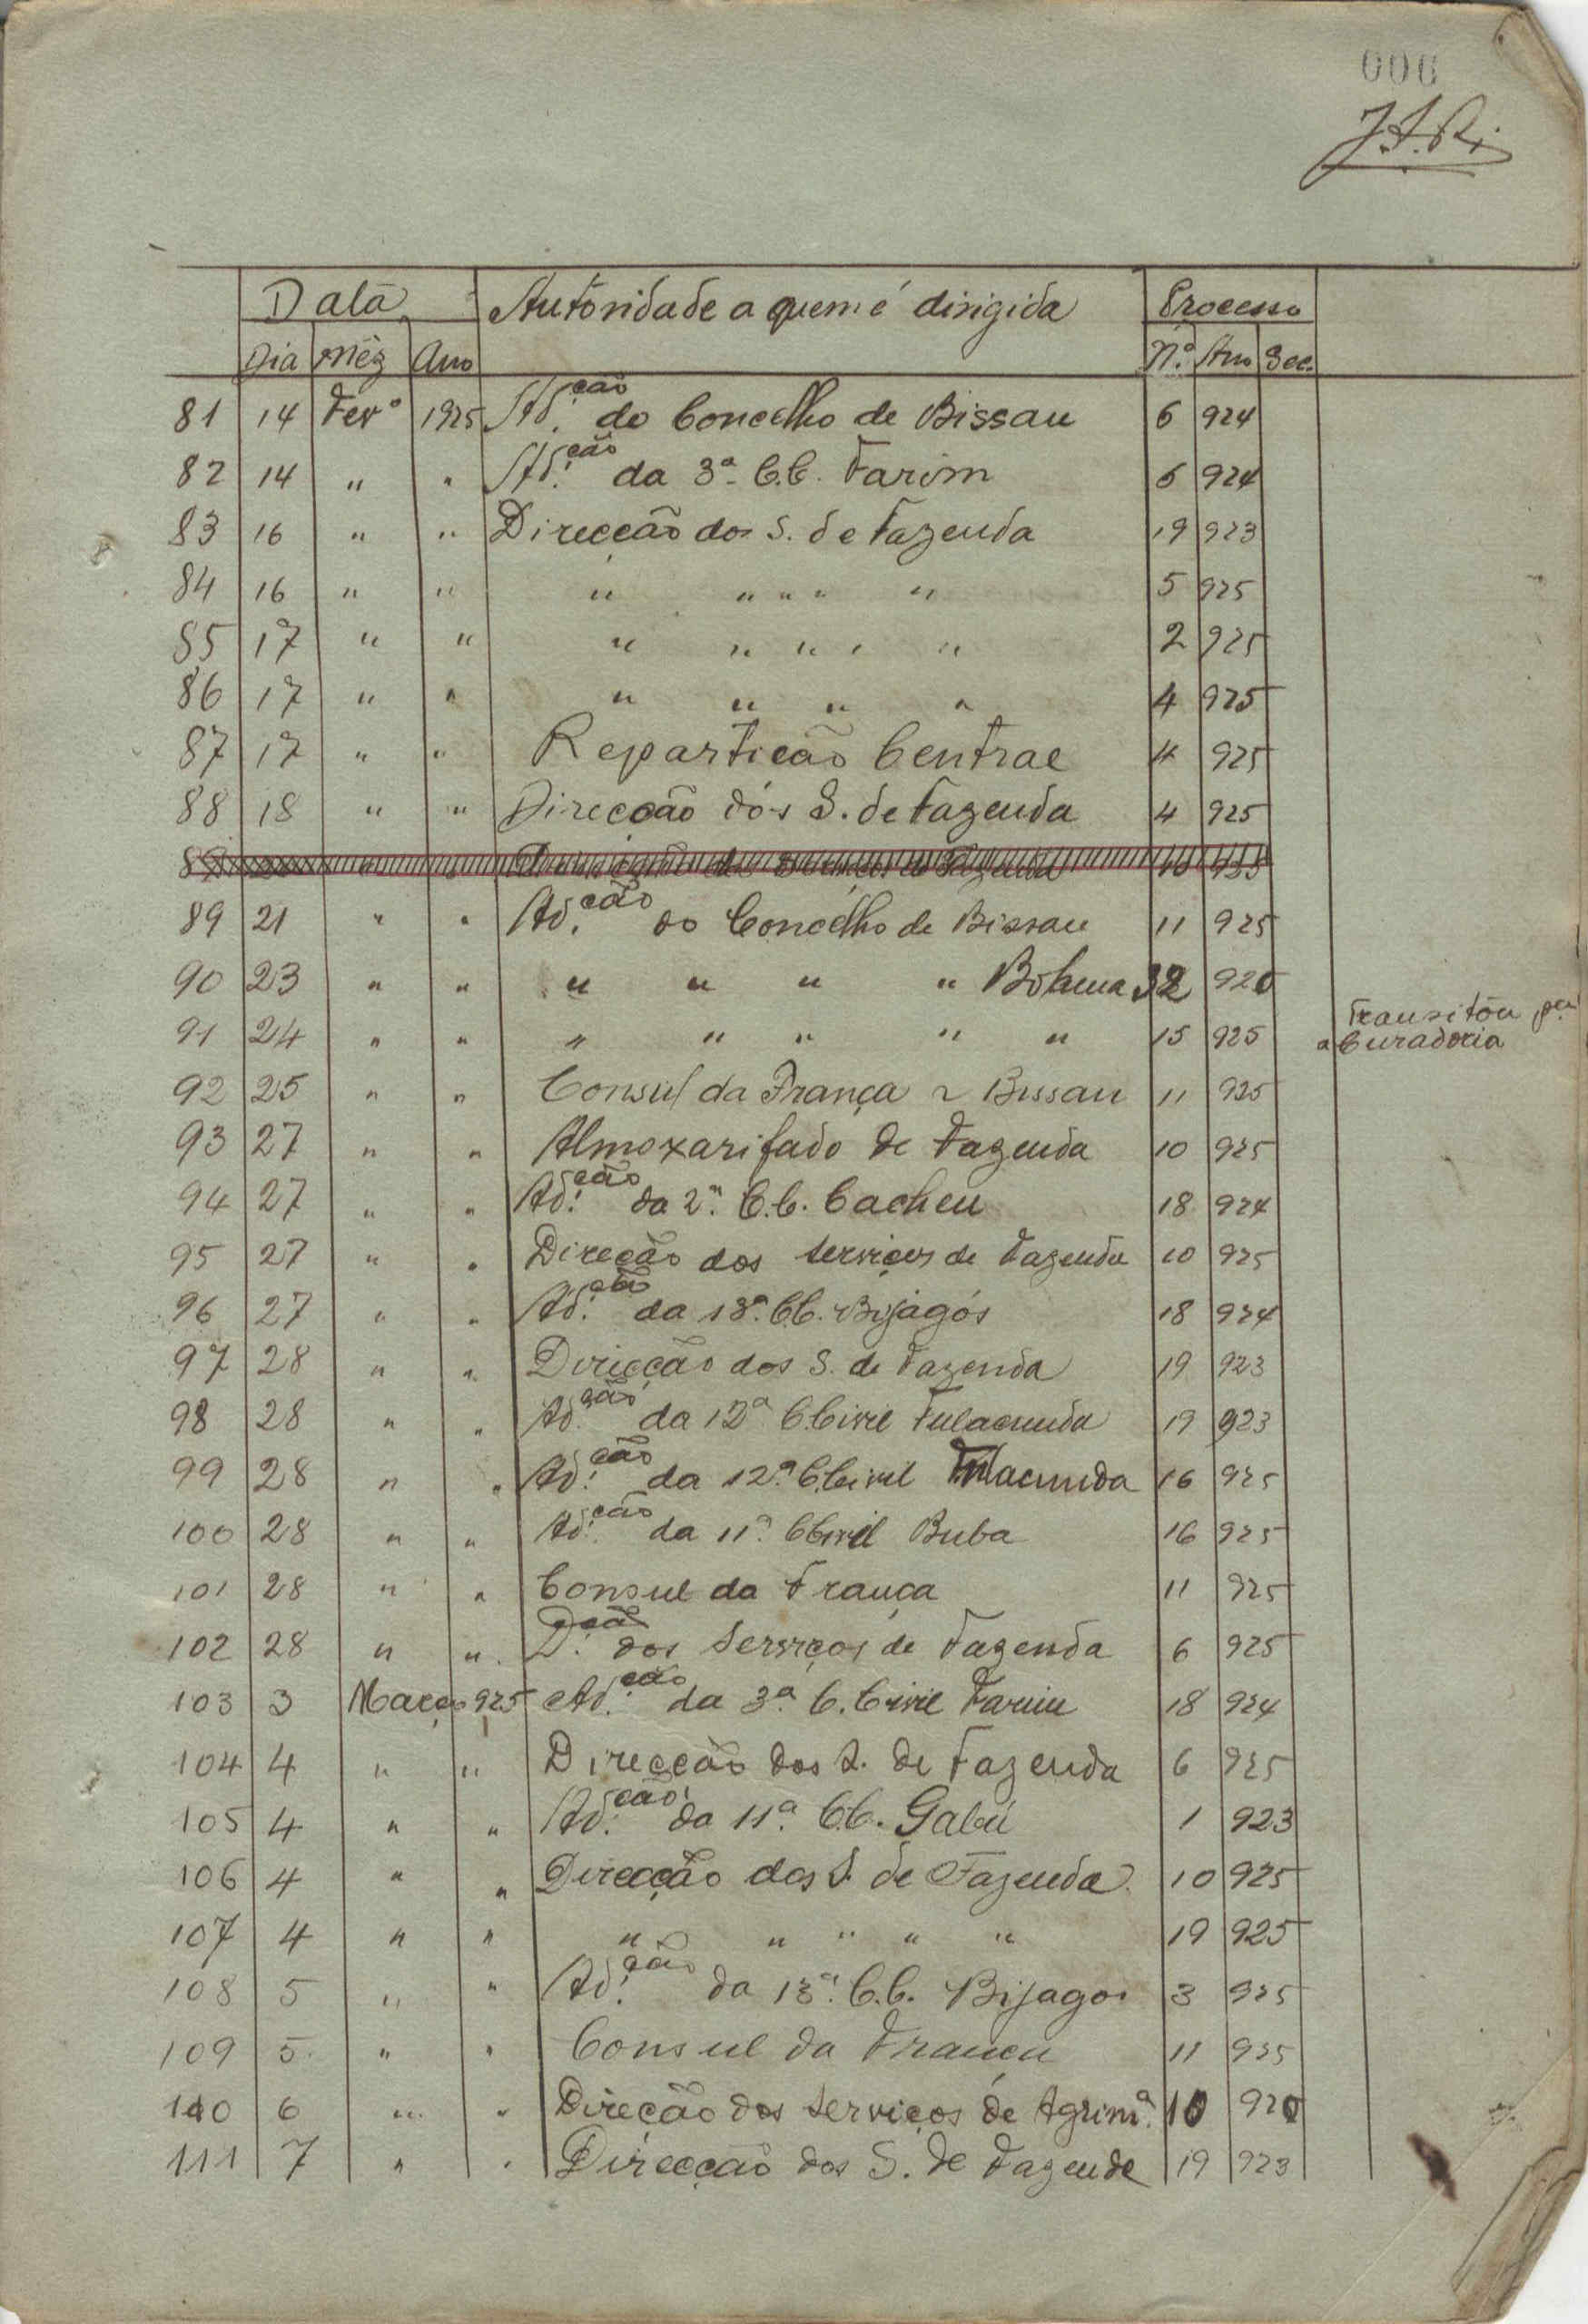 006
J.A.Ri
Data Autoridade a quem é dirigida Processo
Dia Mêz Ano N.º Ano Sec.
81 14 Fevº 1925 Ad.ção do Concelho de Bissau 6 924
82 14 " " Ad.ção da 3ª C.C. Farim 6 924
83 16 " " Direcção dos S. de Fazenda 19 923
84 16 " " " " " " " 5 925
85 17 " " " " " " " 2 925
86 17 " " " " " " 4 925
87 17 " " Repartição Central 4 925
88 18 " " Direcção dos S. de Fazenda 4 925
89 21 " " Ad.ção do Concelho de Bissau 11 925
90 23 " " " " " " Bolama 32 920
91 24 " " " " " " " 15 925 Transitou pª
a Curadoria
92 25 " " Consul da França ~ Bissau 11 925
93 27 " " Almoxarifado de Fazenda 10 925
94 27 " " Ad.ção da 2ª C.C. Cacheu 18 924
95 27 " " Direcção dos Serviços de Fazenda 10 925
96 27 " " Ad.ção da 13ª C.C. Bijagós 18 924
97 28 " " Direcção dos S. de Fazenda 19 923
98 28 " " Ad.ção da 12ª C.Civil Fulacunda 19 923
99 28 " " Ad.ção da 12ª C.Civil Fulacunda 16 925
100 28 " " Ad.ção da 11ª C.Civil Buba 16 925
101 28 " " Consul da França 11 925
102 28 " " D.ção dos Serviços de Fazenda 6 925
103 3 Março 925 Ad.ção da 3ª C. Civil Farim 18 924
104 4 " " Direcção dos S. de Fazenda 6 925
105 4 " " Ad.ção da 11ª C.C. Gabú 1 923
106 4 " " Direcção dos S. de Fazenda 10 925
107 4 " " " " " " " 19 925
108 5 " " Ad.ção da 13ª C.C. Bijagos 3 925
109 5 " " Consul da França 11 925
110 6 " " Direção dos Serviços de Agrimª. 10 920
111 7 " " Direcção dos S. de Fazende 19 923